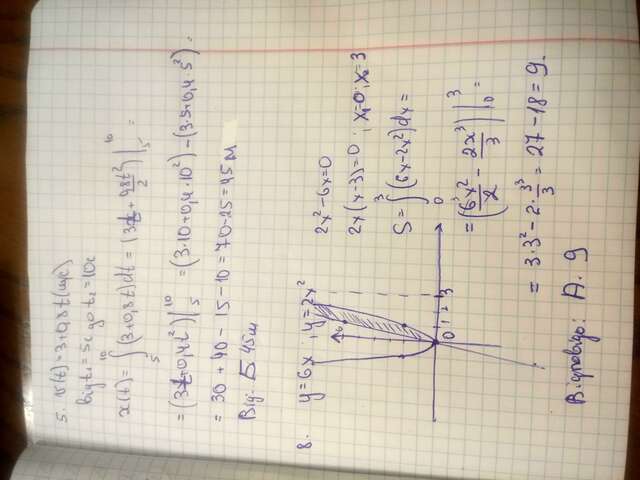 5. v(t)=3+0,8t (м/с)
від t₁=5с до t₂=10с
x(t)=∫₅¹⁰(3+0,8t)dt=(3t+0,8t²/2)|₅¹⁰=
=(3t+0,4t²)|₅¹⁰=(3·10+0,4·10²)-(3·5+0,4·5²)=
=30+40-15-10=70-25=45м
Від: Б 45м
8. y=6x ; y=2x²
2x²-6x=0
2x(x-3)=0; x₁=0; x₂=3
S=∫₀³(6x-2x²)dx=
=(6x²/2-2x³/3)|₀³=
=3·3²-2·3³/3=27-18=9.
0 1 2 3
Відповідь: А. 9